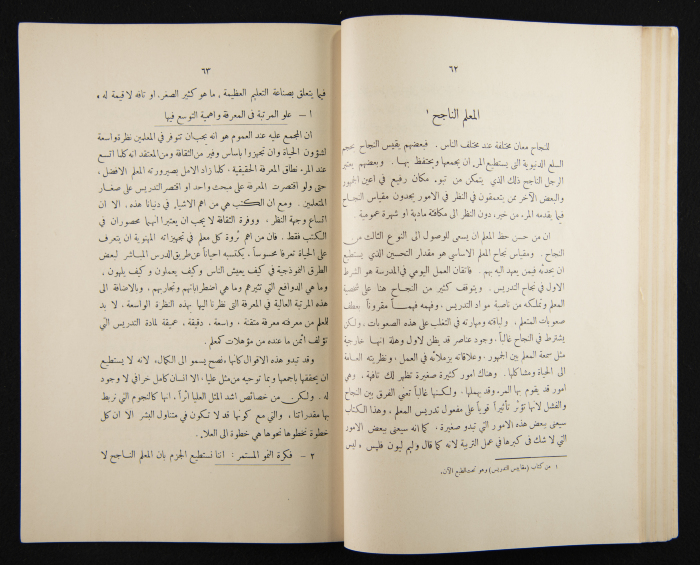 ٦٢
المعلم الناجح ١
للنجاح معان مختلفة عند مختلف الناس . فبعضهم يقيس النجاح بحجم
السلع الدنيوية التي يستطيع المرء ان يجمعها ويحتفظ بهـا . وبعضهم يعتبر
الرجل الناجح ذلك الذي يتمكن من تبوء مكان رفيع في اعين الجمهور
والبعض الآخر ممن يتعمقون في النظر في الامور يجدون مقياس النجاح
فيما يقدمه المرء من خير، دون النظر الى مكافئة مادية او شهرة عمومية .
ان من حسن حظ المعلم ان يسعى للوصول الى النوع الثالث من
النجاح . ومقياس نجاح المعلم الاساسي هو مقدار التحسين الذي يستطيع
ان يحدثه فيمن يعهد اليه بهم . فاتقان العمل اليومي في المدرسة هو الشرط
الاول في نجاح التدريس . ويتوقف كثير من النجاح هنا على شخصية
المعلم وتملكه من ناصية مواد التدريس ، وفهمه فهمــاً مقروناً بعطف
صعوبات المتعلم ، ولباقته ومهارته في التغلب على هذه الصعوبات . ولكن
يشترط في النجاح غالباً ، وجود عناصر قد يظن لاول وهلة انها خارجية
مثل سمعة المعلم بين الجمهور ، وعلاقاته بزملائه في العمل ، ونظريته العامة
الى الحياة ومشاكلها . وهناك امور كثيرة صغيرة تظهر لك تافهة ، وهي
امور قد يقوم بها المرء وقد يهملها . ولكنها غالباً تعني الفرق بين النجاح
والفشل لانها تؤثر تأثيراً قوياً على مفعول تدريس المعلم ، وهذا الكتاب
سيعنى ببعض هذه الامور التي تبدو صغيرة ، كما انه سيعنى ببعض الامور
التي لا شك في كبرها في عمل التربية لانه كما قال وليم ليون فلبس « ليس
١ من كتاب (مقاييس التدريس) وهو تحت الطبع الآن.
٦٣
فيما يتعلق بصناعة التعليم العظيمة ، ما هو كثير الصغر . او تافه لا قيمة له »
١ – علو المرتبة في المعرفة واهمية التوسع فيها
ان المجمع عليه عند العموم هو انه يجب ان تتوفر في المعلمين نظرة واسعة
لشؤون الحياة وان تجهزوا باساس وفير من الثقافة ومن المعتقد انه كلما اتسع
عند المرء نطاق المعرفة الحقيقية ، كلما زاد الامل بصيرورته المعلم الافضل ،
حتى ولو اقتصرت المعرفة على مبحث واحد او اقتصر التدريس على صغـار
المتعلمين . ومع ان الكتب هي من اهم الاشياء في دنيانا هذه ، الا ان
اتساع وجهة النظر ، ووفرة الثقافة لا يجب ان يعتبرا انهما محصوران في
الكتب فقط . فان من اهم ثروة كل معلم في تجهيزاته المهنوية ان يتعرف
على الحياة تعرفاً محسوساً ، يكتسبه احياناً عن طريق الدرس المبـاشر لبعض
الطرق النموذجية في كيف يعيش الناس وكيف يعملون وكيف يلهون ،
وما هي الدوافع التي تثيرهم وما هي اضطراباتهم وتجاربهم ، وبالاضافة الى
هذه المرتبة العالية في المعرفة التي نظرنا اليها بهذه النظرة الواسعة ، لا بد
للمعلم من معرفته معرفة متقنة ، واسعة ، دقيقة ، عميقة لمادة التدريس التي
تؤلف اثمن ما عنده من مؤهلات كمعلم .
وقد تبدو هذه الاقوال كأنها ، نصح يسمو الى الكمال» لانه لا يستطيع
ان يحققها باجمعها وبما توحيه من مثل عليا ، الا انسان كامل خرافي لا وجود
له . ولكـن من خصائص اشد المثل العليا اثراً ، انها كالنجوم التي تربط
بها مقدراتنا ، والتي مع كونها قد لا تكون في متناول البشر الا ان كل
خطوة نخطوها نحوها هي خطوة الى العلاء .
٢ – فكرة النمو المستمر : اننا نستطيع الجزم بان المعلم النـاجح لا